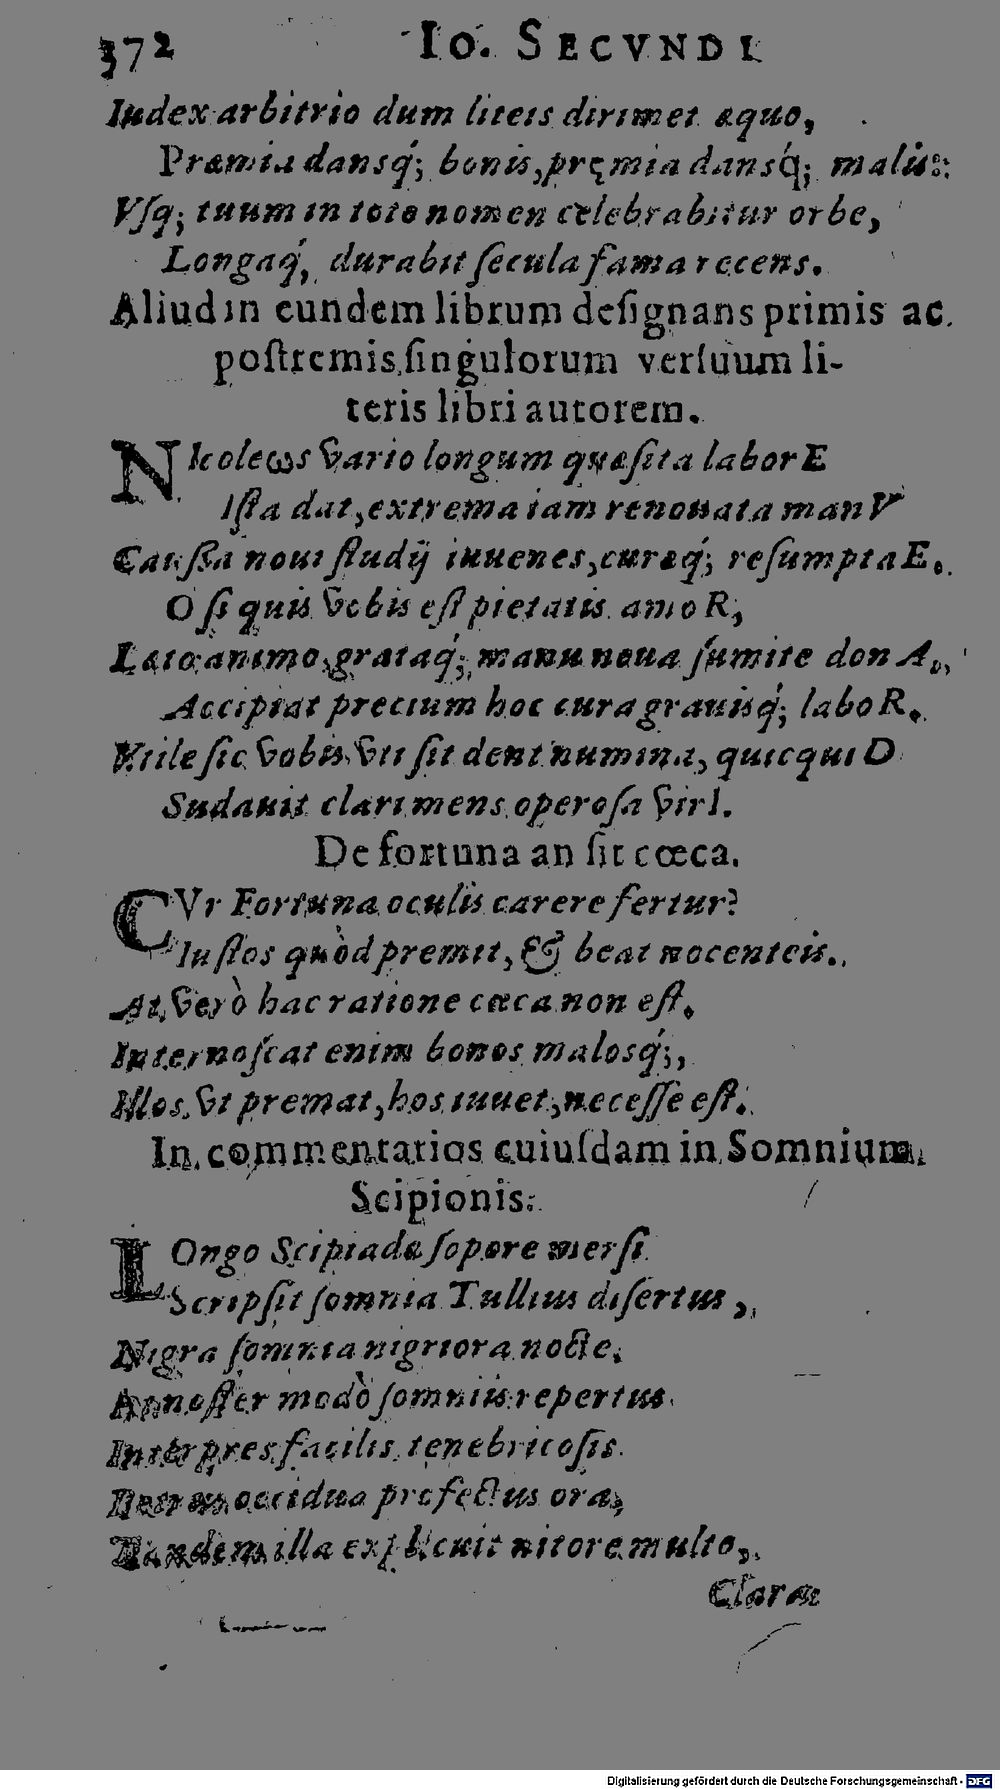 372 Io. SECVNDI
Iudex arbitrio dum liteis dirimet æquo,
Præmia dansq́; bonis, pręmia dansq́; malis:
Vſq; tuum in toto nomen celebrabitur orbe,
Longaq́, durabit ſecula fama recens.
Aliud in eundem librum deſignans primis ac
poſtremis ſingulorum verſuum li-
teris libri autorem.
NIcoleωs vario longum quæſita laborE
Iſta dat, extrema iam renouata manV
Cauſſa noui ſtudij iuuenes, curæq́; reſumptaE.
O ſi quis vobis eſt pietatis amoR,
Læto animo, grataq́; manu noua ſumite donA,
Accipiat precium hoc cura grauisq́; laboR.
Vtile ſic vobis vti ſit dent numina, quicquiD
Sudauit clari mens operoſa virI.
De fortuna an ſit cœca.
CVr Fortuna oculis carere fertur?
Iuſtos quòd premit, & beat nocenteis.
At verò hac ratione cœca non eſt.
Internoſcat enim bonos malosq́;,
Illos vt premat, hos iuuet, neceſſe eſt.
In commentarios cuiuſdam in Somnium
Scipionis.
LOngo Scipiadæ ſopore merſi
Scripſit ſomnia Tullius diſertus,
Nigra ſomnia nigriora nocte.
At noſter modò ſomniis repertus
Interpres facilis tenebricoſis
occidua profectus ora,
Tandem illa explicuit nitore multo,
Claræ
Digitalisierung gefördert durch die Deutsche Forschungsgemeinschaft - DFG